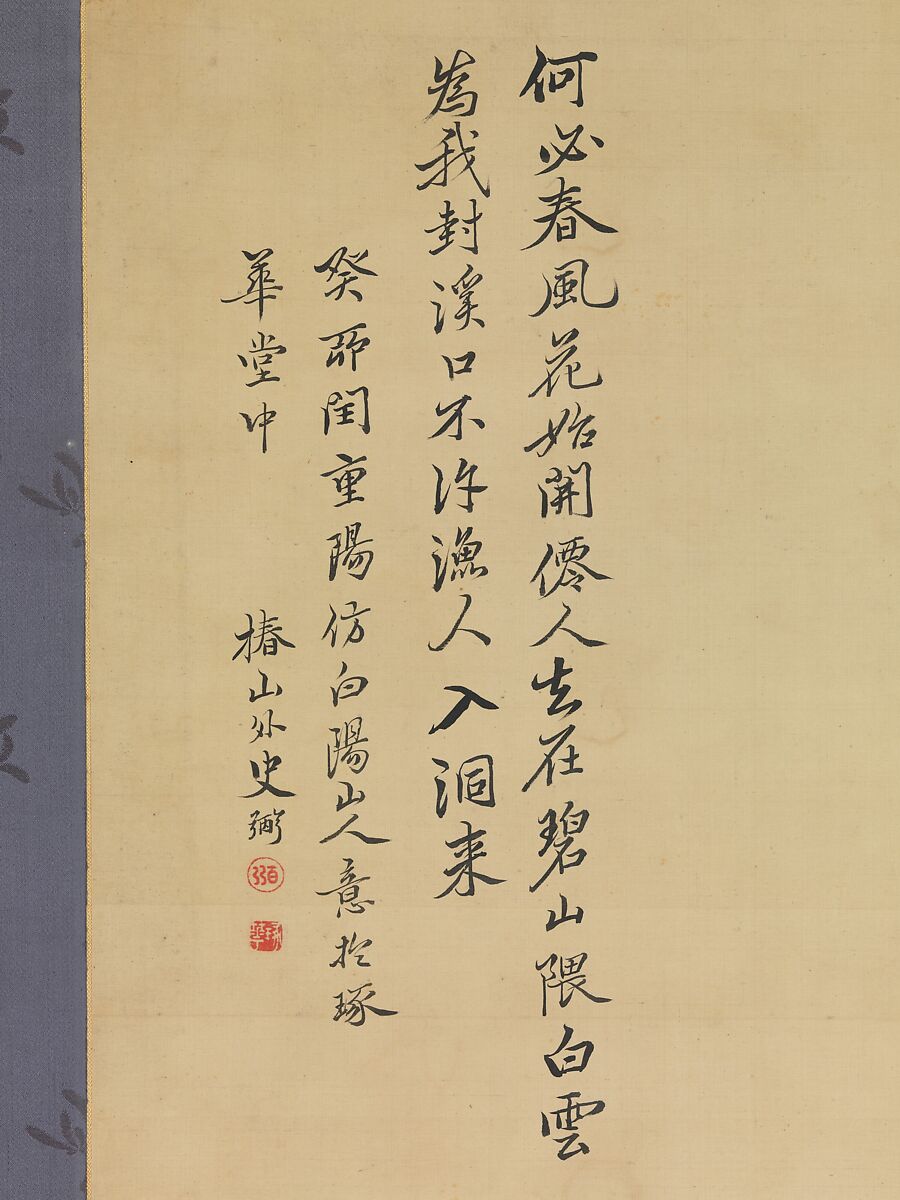 何必春風花始開僊人去在碧山隈白雲
為我封溪口不許漁人入洞来
癸卯閏重陽仿白陽山人意於琢
華堂中
椿山外史弼